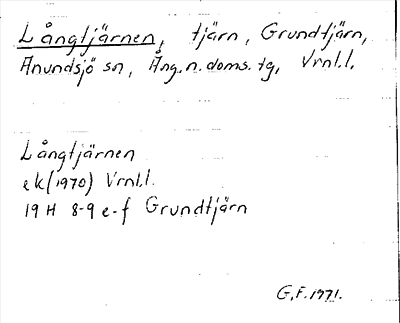 Långtjärnen, tjärn, Grundtjärn,
Anundsjö sn, Ång. n. doms. tg, Vrnl.l.
Långtjärnen
ek (1970) Vrnl.l.
19 H 8-9 e-f Grundtjärn
G.F. 1971.